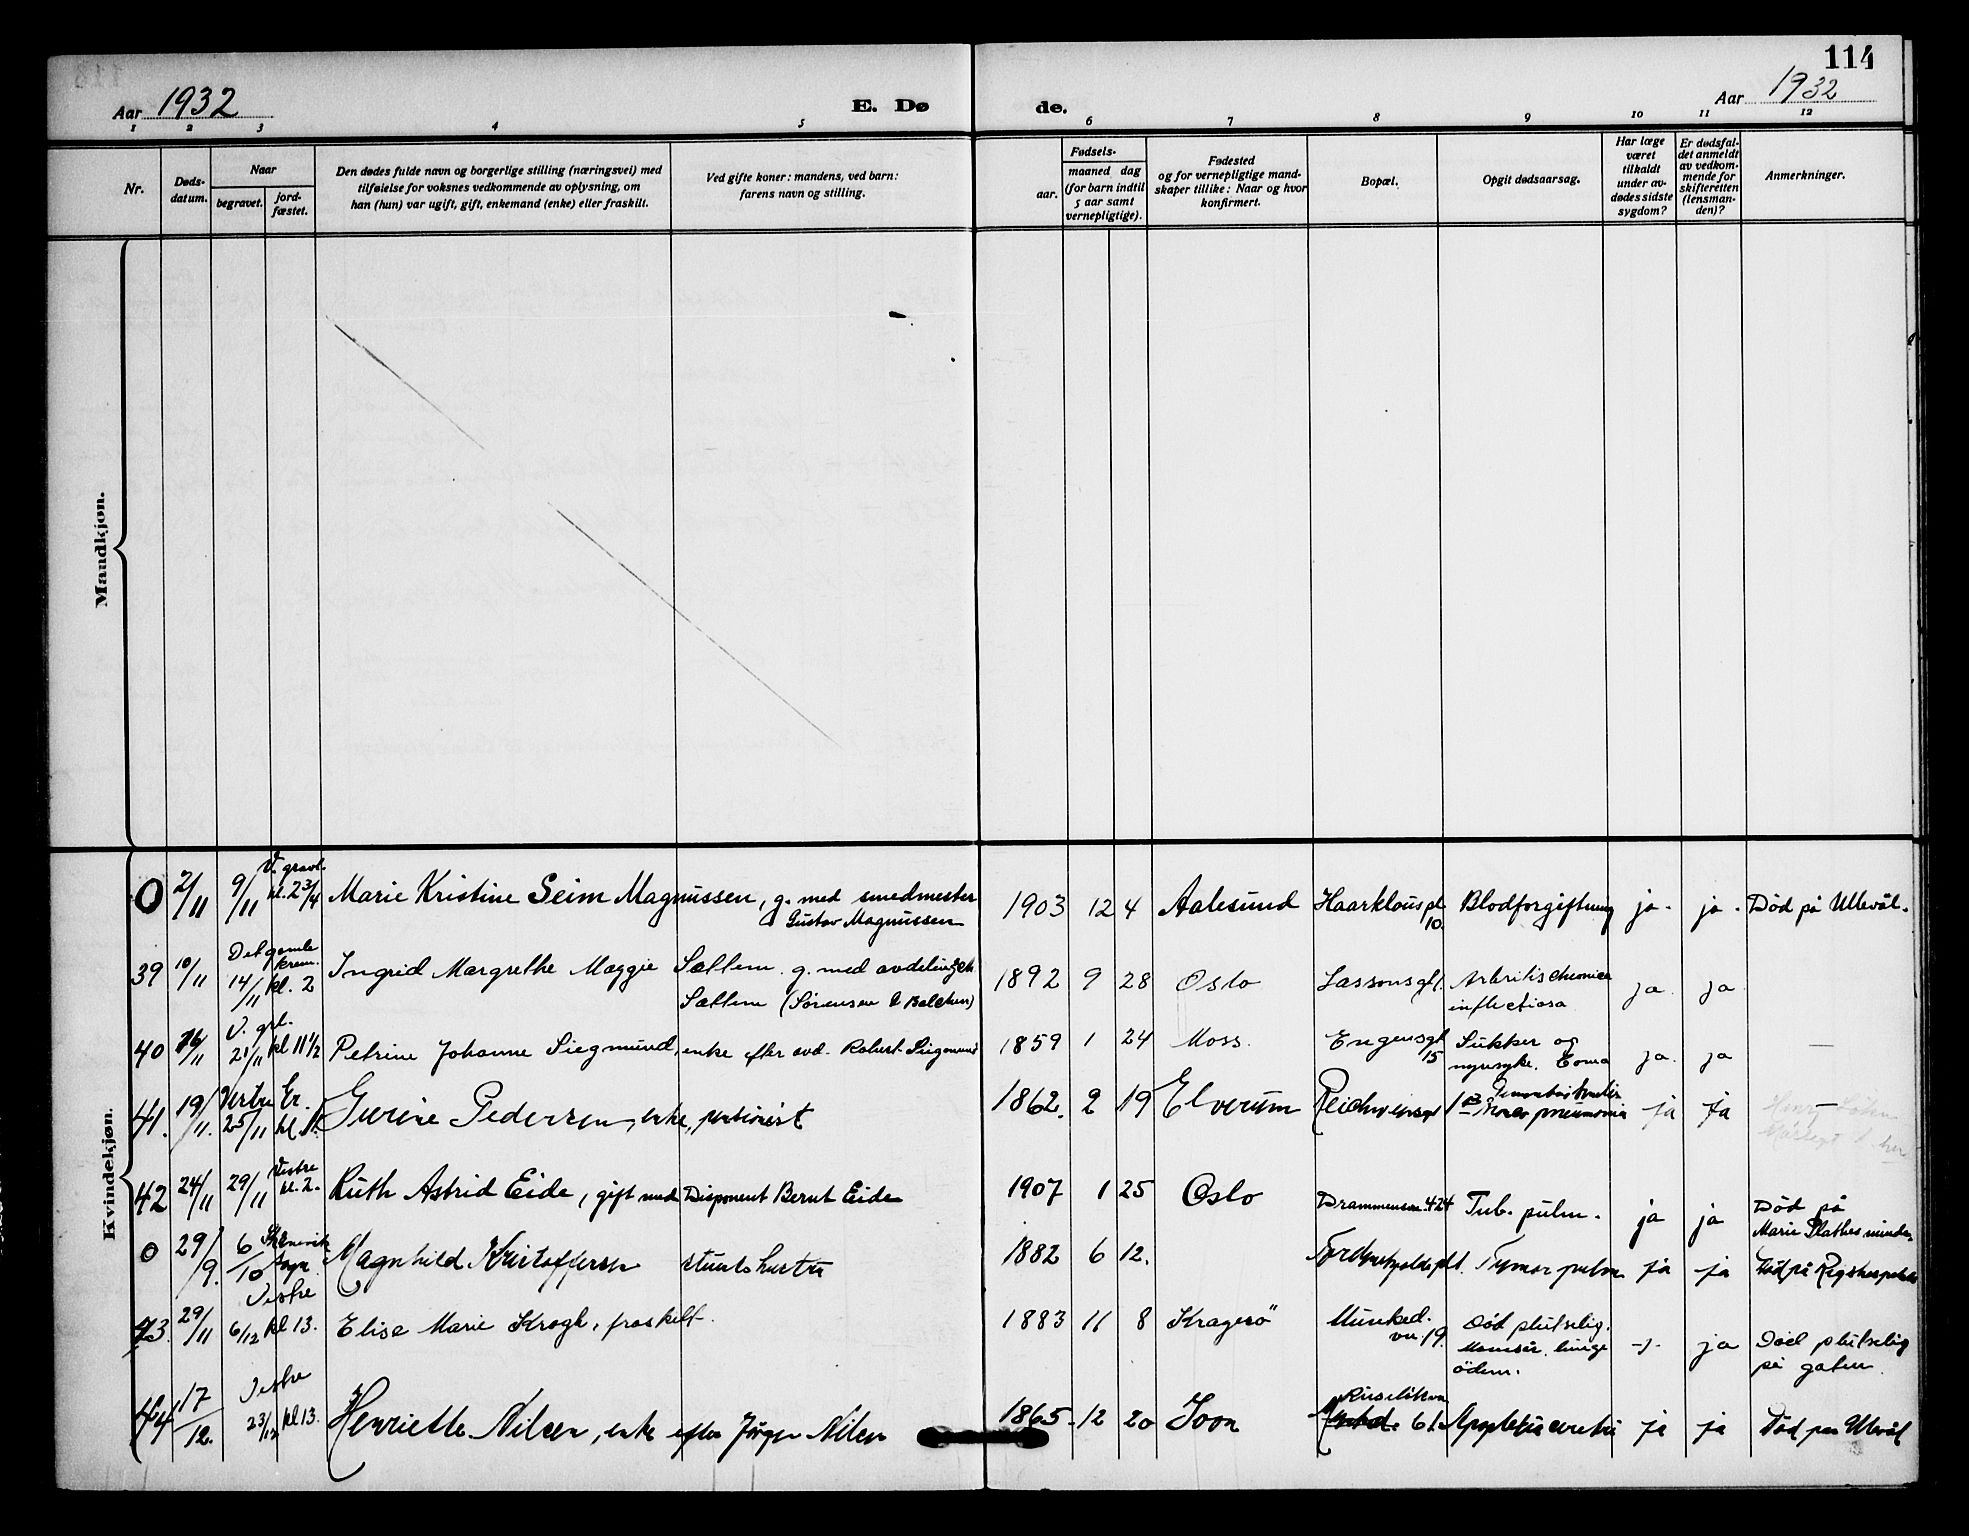 114
Aar 1932 E. Dø de. Aar 1932
1 2 3 4 5 6 7 8 9 10 11 12
Nr.
Døds-
datum.
Naar
begravet.
jord-
fæstet.
Den dødes fulde navn og borgerlige stilling (næringsvei) med
tilføielse for voksnes vedkommende av oplysning, om
han (hun) var ugift, gift, enkemand (enke) eller fraskilt.
Ved gifte koner: mandens, ved barn:
farens navn og stilling.
Fødsels-
aar.
maaned dag
(for barn indtil
5 aar samt
vernepligtige).
Fødested
og for vernepligtige mand-
skaper tillike: Naar og hvor
konfirmert.
Bopæl.
Opgit dødsaarsag.
Har læge
været
tilkaldt
under av-
dødes sidste
sygdom?
Er dødsfal-
det anmeldt
av vedkom-
mende for
skifteretten
(lensman-
den)?
Anmerkninger.
Mandkjøn.
Kvindekjøn.
V. gravl.
0 2/11 9/11 kl. 2 3/4 Marie Kristine Seim Magnussen, g. med smedmester 1903 12 4 Aalesund Haarklouspl. Blodforgiftning ja. ja. Død på Ullevål.
Gustav Magnussen 10.
Det gamle
krem.
39 10/11 14/11 kl. 2 Ingrid Margrethe Maggie Sættem. g. med avdelingsch. 1892 9 28 Oslo Lassonsgt 1. inflectiosa ja. ja
Sættem (Sørensen & Balchen)
V. grl.
40 16/11 21/11 kl 11 1/2 Petrine Johanne Siegmund, enke efter avd. Robert Siegmund 1859 1 24 Moss. Engensgt 15 Sukker og ja. ja —
nyresyke. Coma
41. 19/11. 25/11 kl. 11. Gurine Pedersen, enke, pensionist 1862. 2 19 Elverum Reichweinsgt 1 B pneumonia ja ja
Vestre
42 24/11 29/11 kl. 2. Ruth Astrid Eide, gift med Disponent Bernt Eide 1907 1 25 Oslo Drammensv. 424 Tub. pulm. ja ja Død på
Marie Plathes minde.
0 29/9. 6/10 Magnhild Kristoffersen stuerts hustru 1882 6 12. Tumor pulm ja ja Død på Rigshospitalet
Vestre
43. 29/11 6/12 kl 13. Elise Marie Krogh, fraskilt. 1883 11 8 Kragerö Munked. vn. 19. Död plutselig. ja Død plutselig
lunge på gaten.
ödem.
Vestre
44 17/12. 23/12 kl 13. Henriette Nilsen, enke efter Jörgen Nilsen 1865. 12 20 Soon Ruselökvn 61. Apoplexia cerebri ja ja Död paa Ullevål